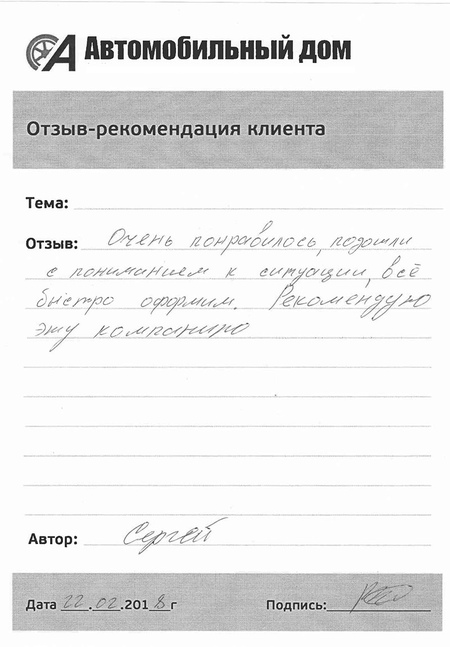 Автомобильный дом
Отзыв-рекомендация клиента
Тема:
Отзыв: Очень понравилось, подошли
с пониманием к ситуации, всё
быстро оформим. Рекомендую
эту компанию
Автор: Сергей
Дата 22.02.2018г Подпись: